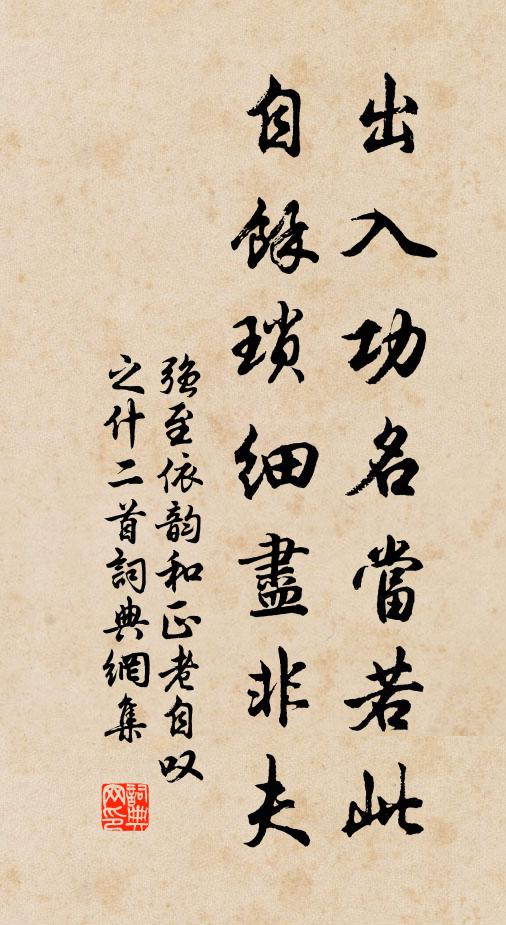 出入功名當若此
自餘瑣細盡非夫
強至依韵和正老自叹
之什二首詞典網集
詞典
网印